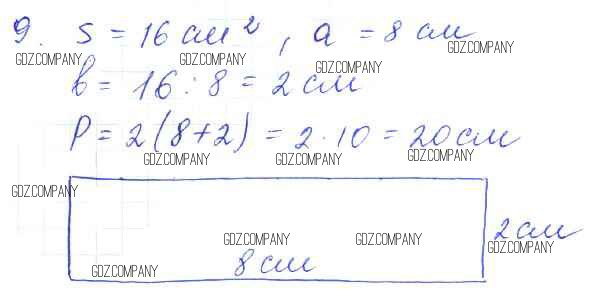 9. S = 16 см², a = 8 см
GDZ.COMPANY GDZ.COMPANY GDZ.COMPANY GDZ.COMPANY
b = 16 : 8 = 2 см
P = 2(8+2) = 2 · 10 = 20 см
GDZ.COMPANY GDZ.COMPANY GDZ.COMPANY
GDZ.COMPANY
2 см
GDZ.COMPANY GDZ.COMPANY
8 см
GDZ.COMPANY